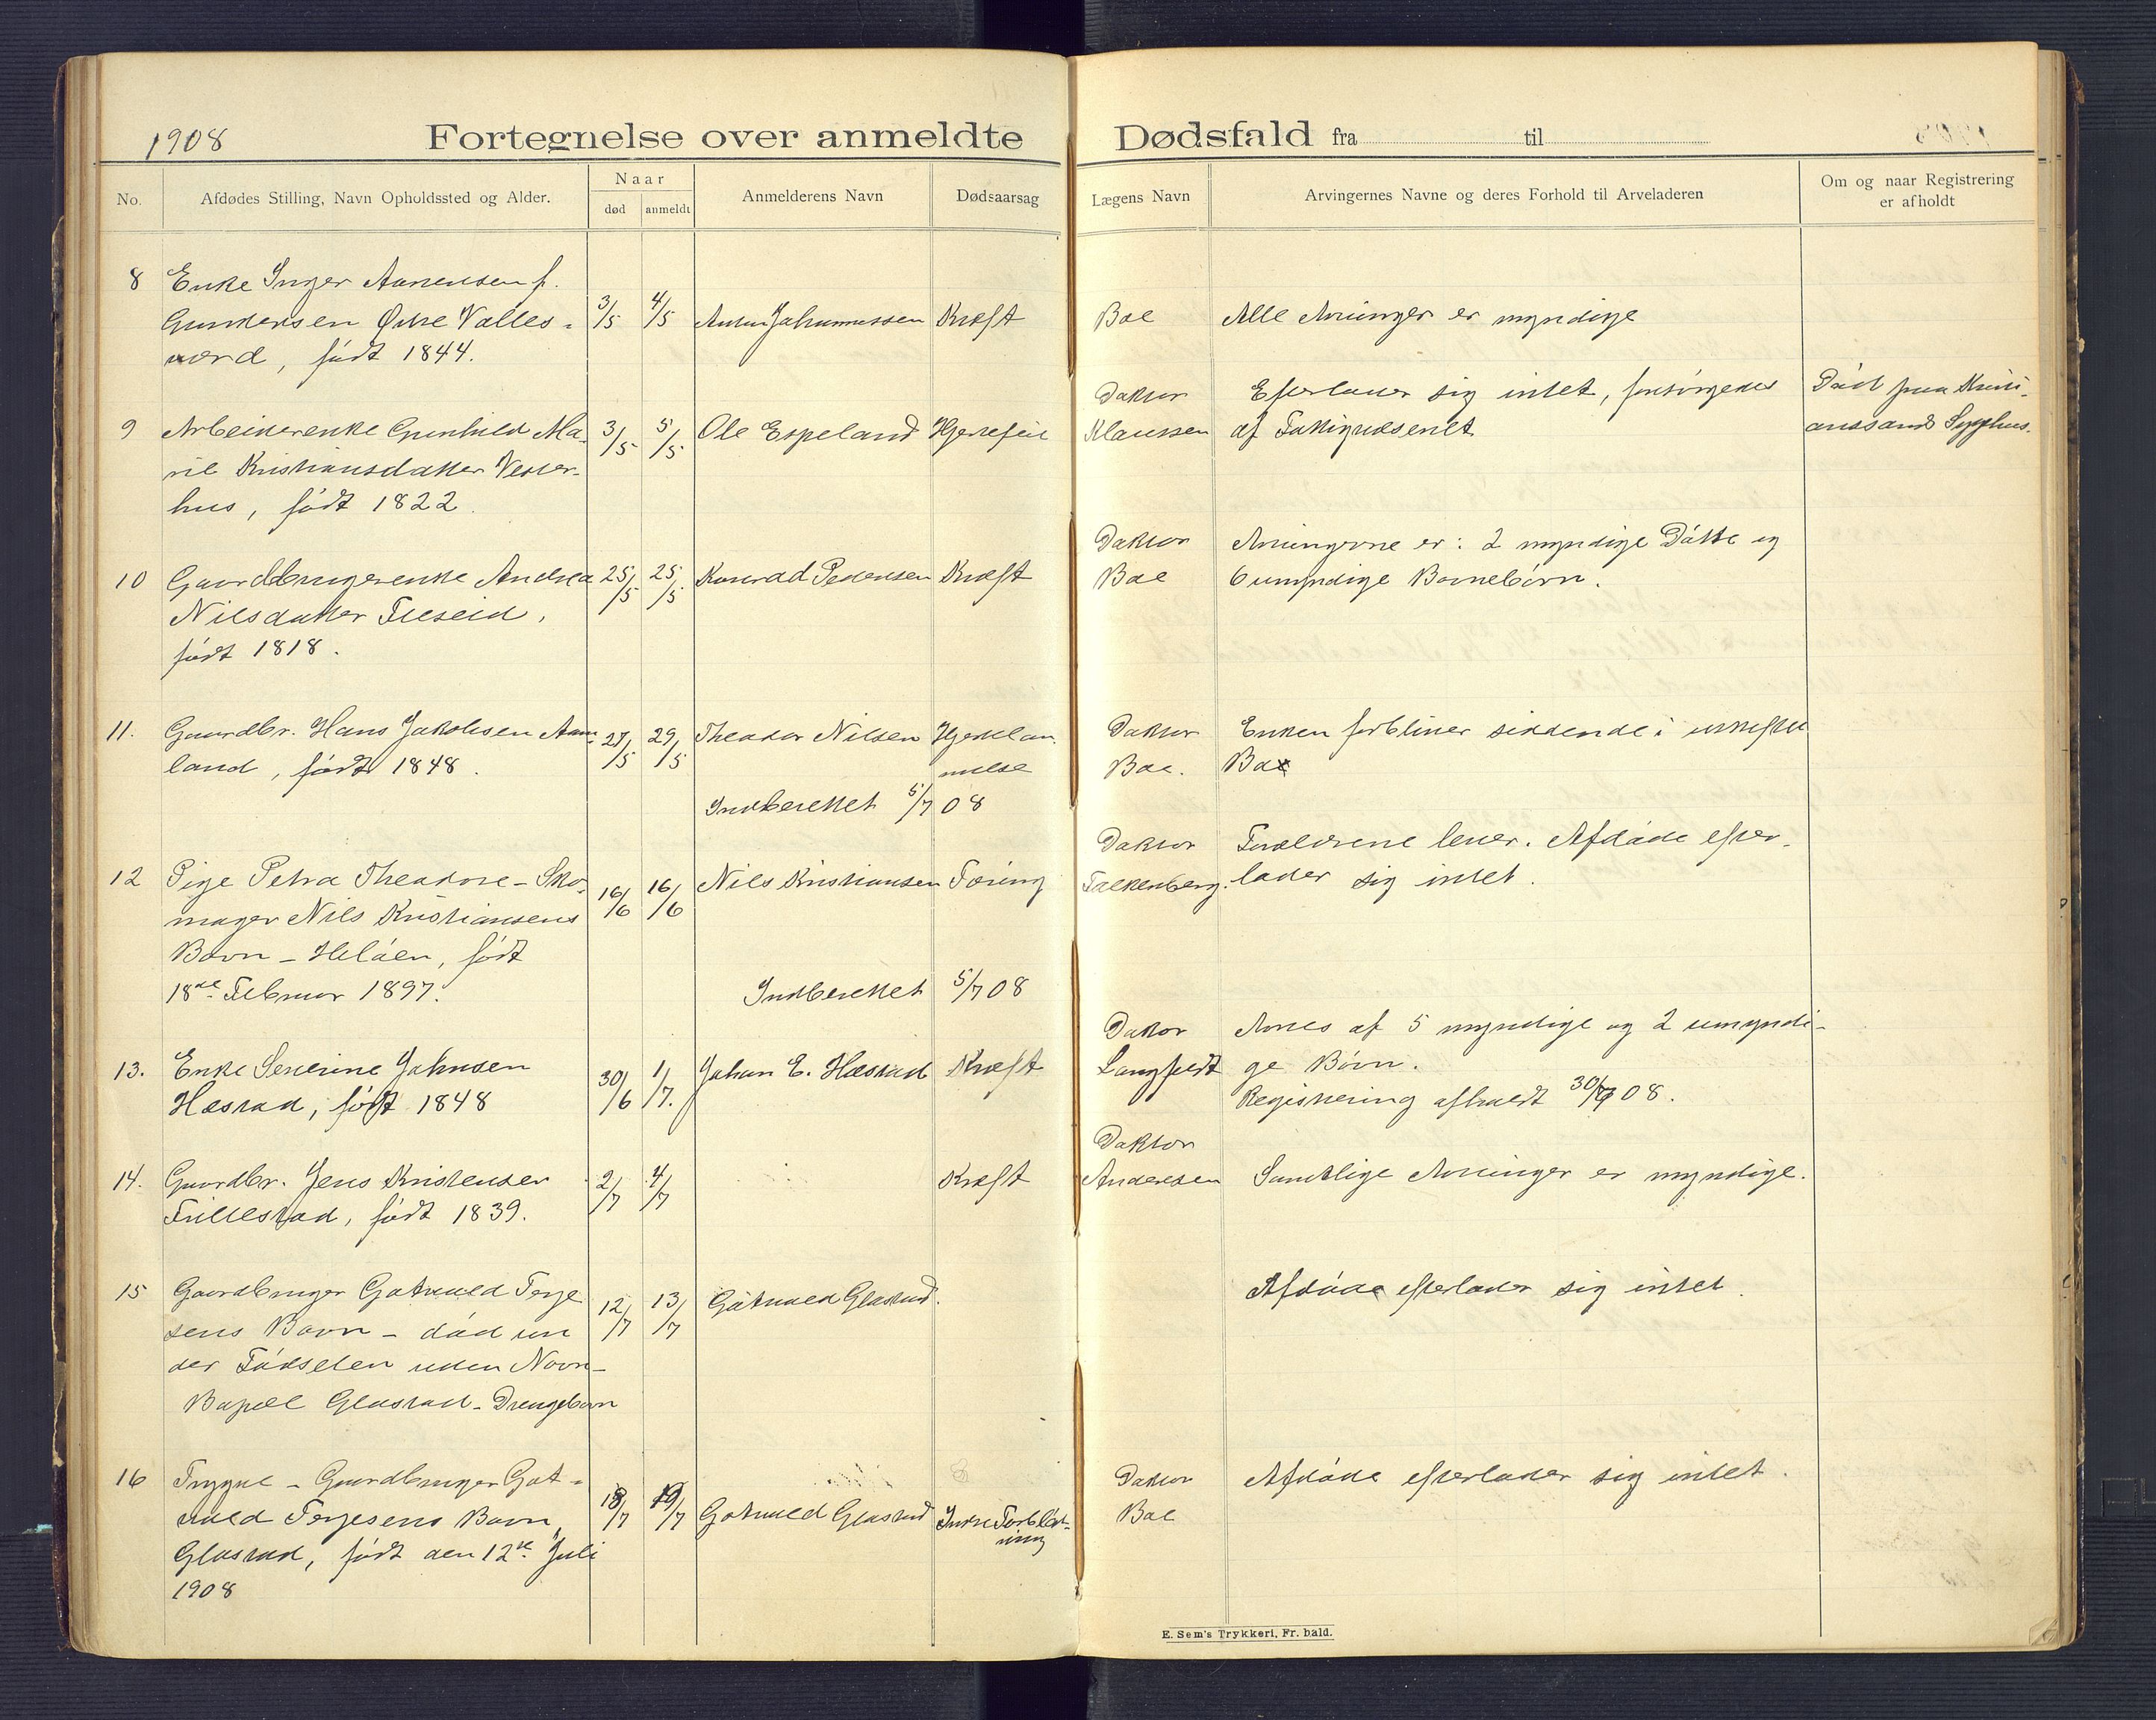 1908
Fortegnelse over anmeldte Dødsfald fra til
No.
Afdødes Stilling, Navn Opholdssted og Alder.
Naar
død
anmeldt
Anmelderens Navn
Dødsaarsag
Lægens Navn
Arvingernes Navne og deres Forhold til Arveladeren
Om og naar Registrering
er afholdt
8 Enke Inger Aanensen f.
Gundersen Østre Valles-
værd, født 1844.
3/5 4/5 Anton Johannessen Kræft
Boe Alle Arvinger er myndige
9 Arbeiderenke Gunhild Ma-
rie Kristiansdatter Vester-
hus, født 1822.
3/5 5/5 Ole Espeland Hjertefeil
Doktor
Klaussen
Efterlader sig intet, forsørgedes
af Fattigvæsenet
Død paa Kristi-
anssands Sygehus.
10 Gaardbrugerenke Andrea
Nilsdatter Fieseid,
født 1818.
25/5 25/5 Konrad Pedersen Kræft
Doktor
Boe
Arvingerne er: 2 myndige Døttre og
6 umyndige Børnebørn.
11. Gaardbr. Hans Jakobsen Aam-
land, født 1848.
27/5 29/5 Theodor Nilsen Hjertelam-
melse
Indberettet 5/7 08
Doktor
Boe.
Enken forbliver siddende i uskiftet
Bo
12 Pige Petra Theodore - Sko-
mager Nils Kristiansens
Barn - Heløen, født
18de Februar 1897.
16/6 16/6 Nils Kristiansen Tæring
Indberettet 5/7 08
Doktor
Falkenberg.
Forældrene lever. Afdøde efter-
lader sig intet.
13. Enke Severine Johnsen
Hæstad, født 1848
30/6 1/7. Johan E. Hæstad Kræft
Doktor
Langfeldt
Arves af 5 myndige og 2 umyndi-
ge Børn.
Registrering afholdt 30/7 08.
14. Gaardbr. Jens Kristensen
Frillestad, født 1839.
2/7 4/7 Kræft
Doktor
Andersen
Samtlige Arvinger er myndige.
15 Gaardbruger Gotvald Terje
sens Barn - død un
der Fødselen uden Navn-
Bapæl Glastad - Drengebarn
12/7 13/7 Gotvald Glastad.
Afdøde efterlader sig intet.
16 Trygve - Gaardbruger Got-
vald Terjesens Barn,
Glastad, født den 12te Juli
1908
18/7 19/7 Gotvald Glastad Indre Forblød-
ning
Doktor
Boe
Afdøde efterlader sig intet.
E. Sem's Trykkeri, Fr. hald.